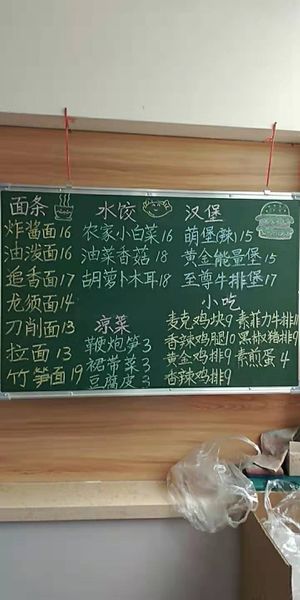 面条
炸酱面16
油泼面16
追香面17
龙须面14
刀削面13
拉面13
竹笋面19
水饺
农家小白菜16
油菜香菇18
胡萝卜木耳18
凉菜
鞭炮笋3
裙带菜3
豆腐皮3
汉堡
萌堡(辣)15
黄金能量堡15
至尊牛排堡17
小吃
麦克鸡块9 素菲力牛排11
香辣鸡腿10 黑椒猪排9
黄金鸡排9 素煎蛋4
香辣鸡排9